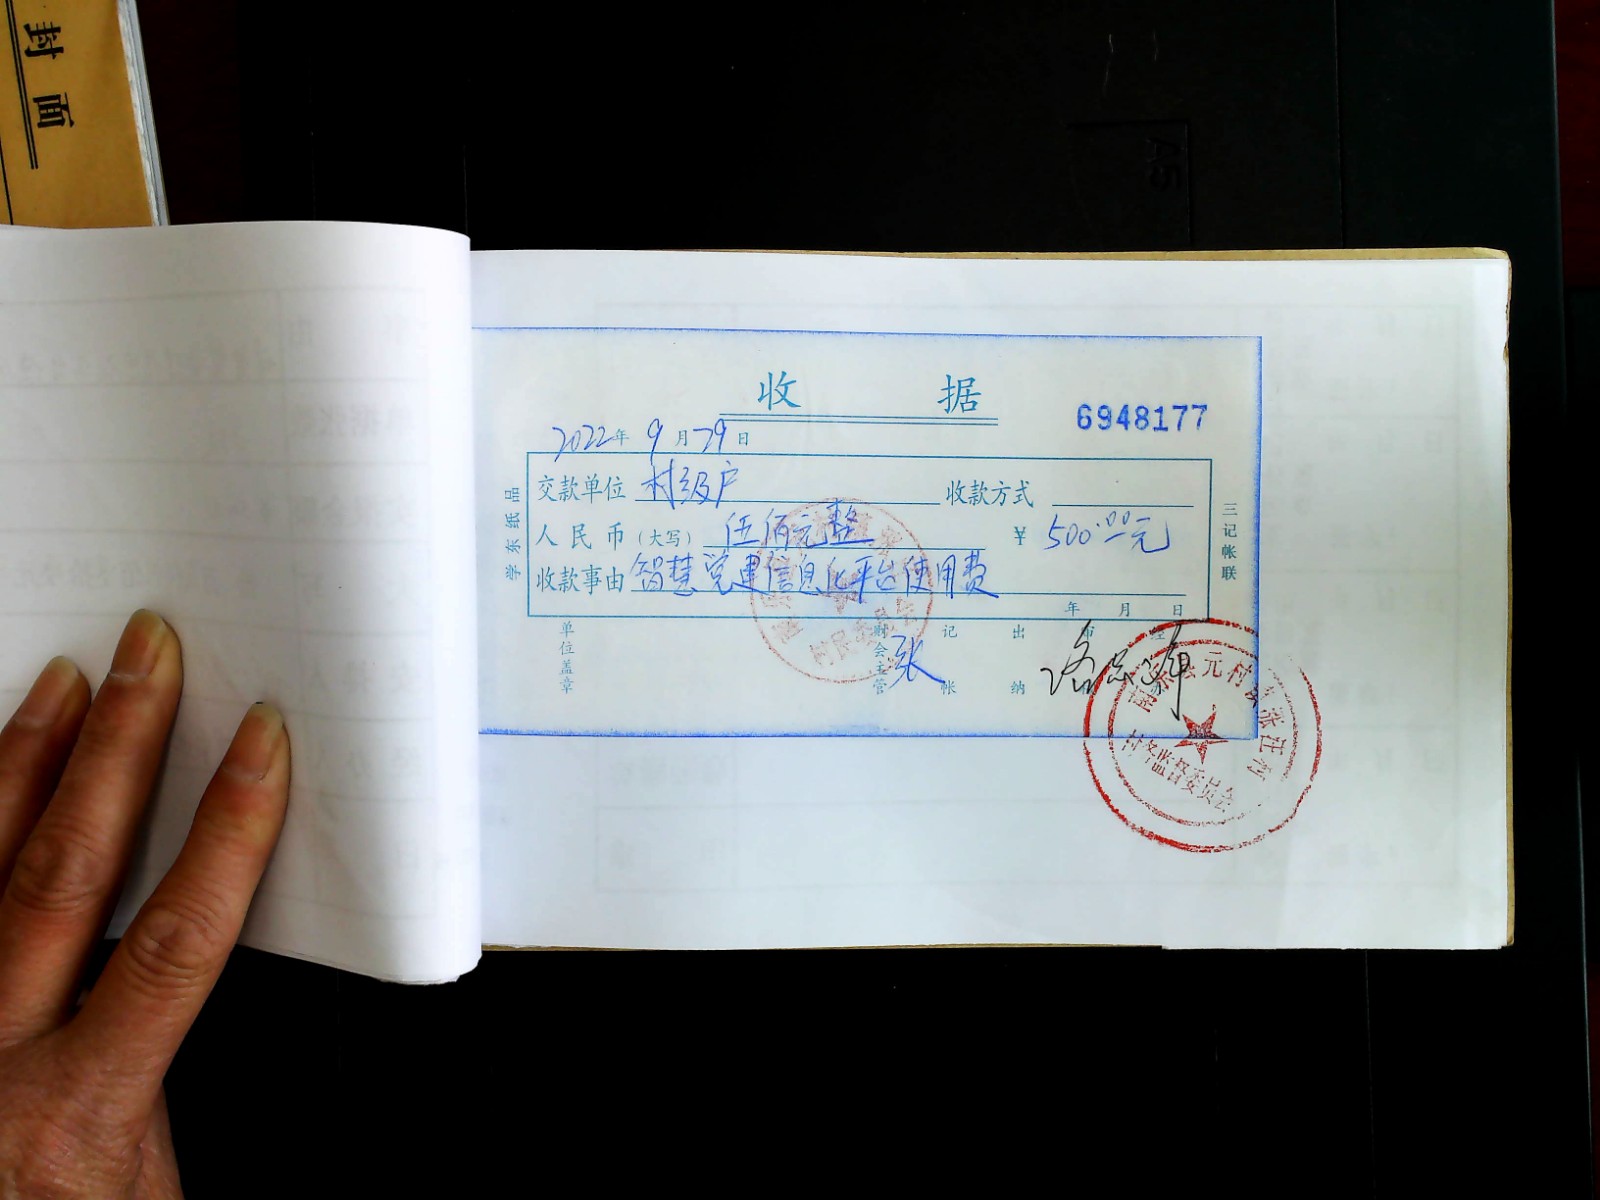 封面
A5
收据
6948177
2022年9月29日
交款单位 村级户 收款方式
人民币(大写) 伍佰元整 ¥ 500.00元
收款事由 智慧党建信息化平台使用费
年 月 日
学东纸品
三记帐联
单位盖章 财会主管 张 记帐 出纳
村民委员会
南乐县元村镇 涨汪村
村务监督委员会